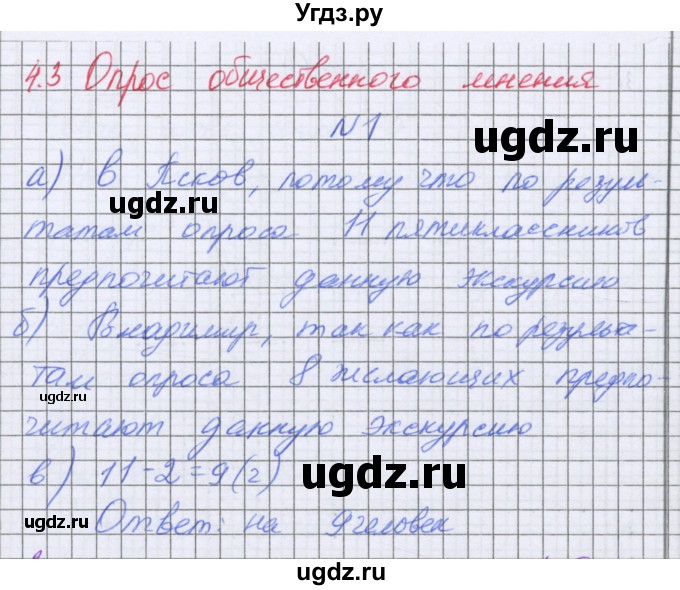 Угдз.ру
4.3 Опрос общественного мнения
№1
а) В Псков, потому что по резуль-
татам опроса 11 пятиклассников
предпочитают данную экскурсию
б) Владимир, так как по результа-
там опроса 8 желающих предпо-
читают данную экскурсию
в) 11-2=9(г)
Ответ: на 9 человек
ugdz.ru
ugdz.ru
ugdz.ru
ugdz.ru
ugdz.ru
ugdz.ru